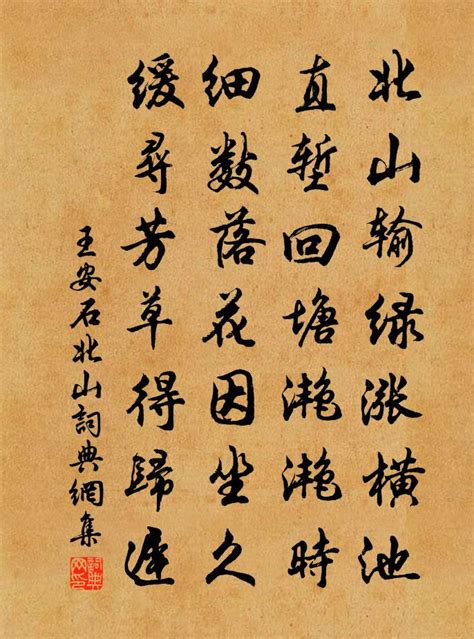 北山输绿涨横池
直堑回塘滟滟时
细数落花因坐久
缓尋芳草得歸遲
王安石北山詞典網集
詞典网印